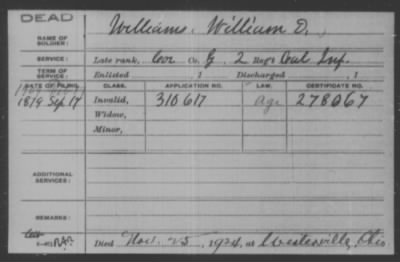 DEAD
NAME OF SOLDIER: Williams, William D.
SERVICE: Late rank, Cor Co. G, 2 Reg't Inf.
TERM OF SERVICE: Enlisted , 1 Discharged , 1
DATE OF FILING. CLASS. APPLICATION NO. LAW. CERTIFICATE NO.
1879 Sep 17 Invalid, 310617 278067
Widow,
Minor,
ADDITIONAL SERVICES:
REMARKS:
Died Nov. 25, 1924, at Westerville, Ohio